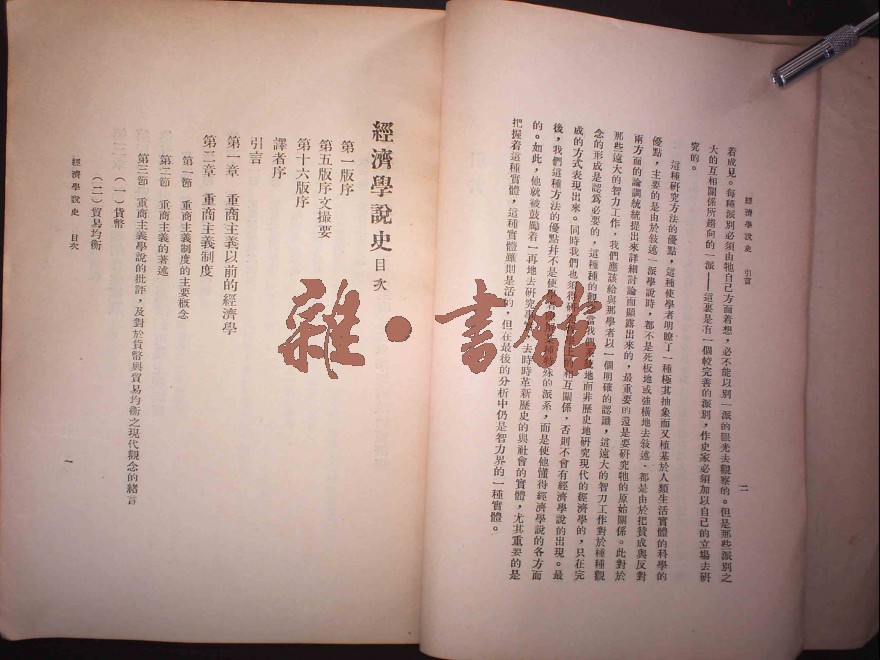 經濟學說史 引言
二
着成見。每種派別必須由牠自己方面着想,必不能以別一派的眼光去觀察的。但是那些派別之
大的互相關係所趨向的一派——這裏是有一個較完善的派別,作史家必須加以自己的立場去研
究的。
這種研究方法的優點,這種使學者明瞭了一種極其抽象而又植基於人類生活實體的科學的
優點,主要的是由於敍述一派學說時,都不是死板地或強橫地去敍述,都是由於把贊成與反對
兩方面的論調統統提出來詳細討論而顯露出來的,最重要的還是要研究牠的原始關係。此對於
那些遠大的智力工作,我們應該給與那學者以一個明確的認識,這遠大的智力工作對於種種觀
念的形成是認爲必要的,這種種的觀
當我們
地而非歷史地研究現代的經濟學的,只在完
成的方式表現出來。同時我們也須得
上的相互關係,否則不會有經濟學說的出現。最
後,我們這種方法的優點并不是使
殊的派系,而是使他懂得經濟學說的各方面
的。如此,他就被鼓勵着一再地去研究事
去時時革新歷史的與社會的實體,尤其重要的是
把握着這種實體,這種實體雖則是活的,但在最後的分析中仍是智力界的一種實體。
經濟學說史 目次
第一版序
第五版序文撮要
第十六版序
譯者序
引言
第一章 重商主義以前的經濟學
第二章 重商主義制度
第一節 重商主義制度的主要槪念
第二節 重商主義的著述
第三節 重商主義學說的批評,及對於貨幣與貿易均衡之現代觀念的緒言
(一)貨幣
(二)貿易均衡
經濟學說史 目次
一
雜·書館